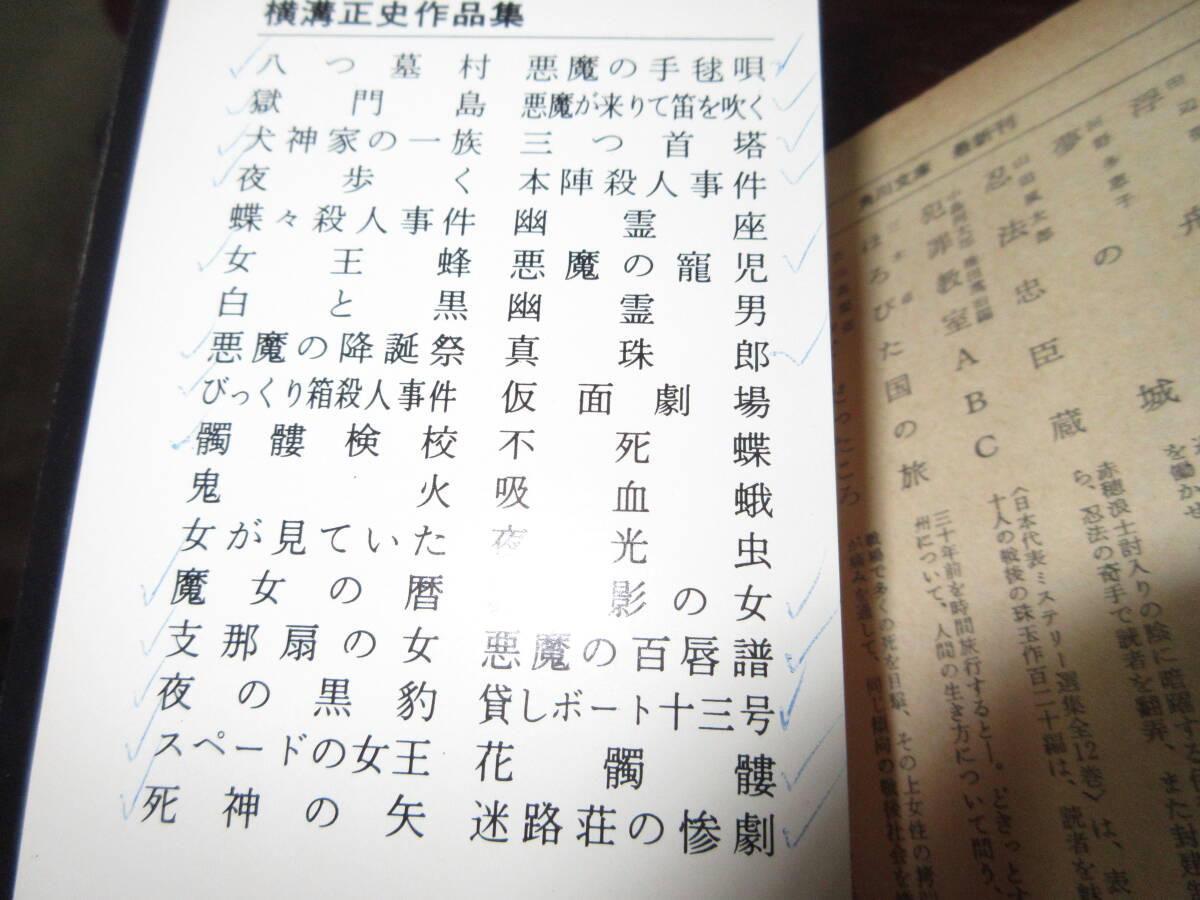 横溝正史作品集
八つ墓村 悪魔の手毬唄
獄門島 悪魔が来りて笛を吹く
犬神家の一族 三つ首塔
夜歩く 本陣殺人事件
蝶々殺人事件 幽霊座
女王蜂 悪魔の寵児
白と黒 幽霊男
悪魔の降誕祭 真珠郎
びっくり箱殺人事件 仮面劇場
髑髏検校 不死蝶
鬼火 吸血蛾
女が見ていた 夜光虫
魔女の暦 影の女
支那扇の女 悪魔の百唇譜
夜の黒豹 貸しボート十三号
スペードの女王 花髑髏
死神の矢 迷路荘の惨劇
角川文庫 最新刊
河野多恵子
夢の城
山田風太郎
忍法忠臣蔵
赤穂浪士討入りの陰に暗躍する
ら、忍法の奇手で読者を翻弄、また封建
犯罪教室ABC
〈日本代表ミステリー選集全12巻〉は、表
十人の戦後の珠玉作百二十編は、読者を魅
ほろびた国の旅
三十年前を時間旅行すると―。どきっと大
州について、人間の生き方について間う、
戦場で多くの死を目撃、その上女性の拷
が痛みを通して、同じ傾向の戦後社会を